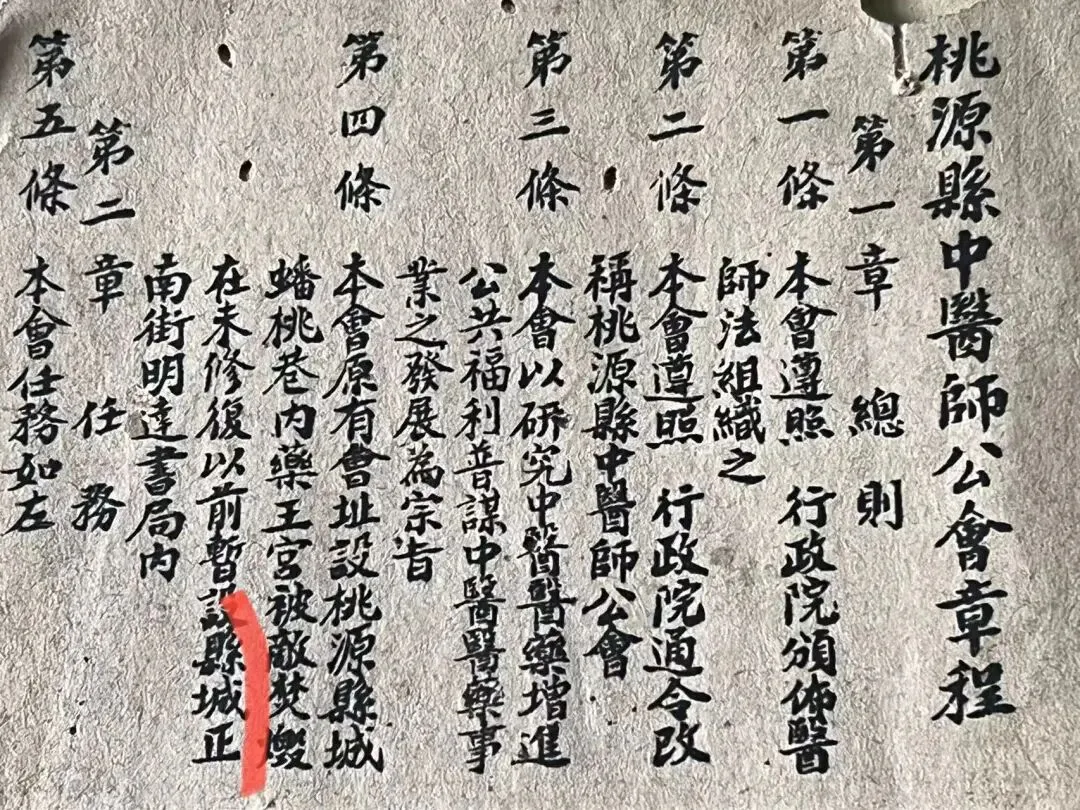 桃源縣中醫師公會章程
第一章 總則
第一條 本會遵照 行政院頒佈醫
師法組織之
第二條 本會遵照 行政院通令改
稱桃源縣中醫師公會
第三條 本會以研究中醫醫藥增進
公共福利普謀中醫醫藥事
業之發展為宗旨
第四條 本會原有會址設桃源縣城
蟠桃巷內藥王宮被敵焚燬
在未修復以前暫設縣城正
南街明達書局內
第二章 任務
第五條 本會任務如左